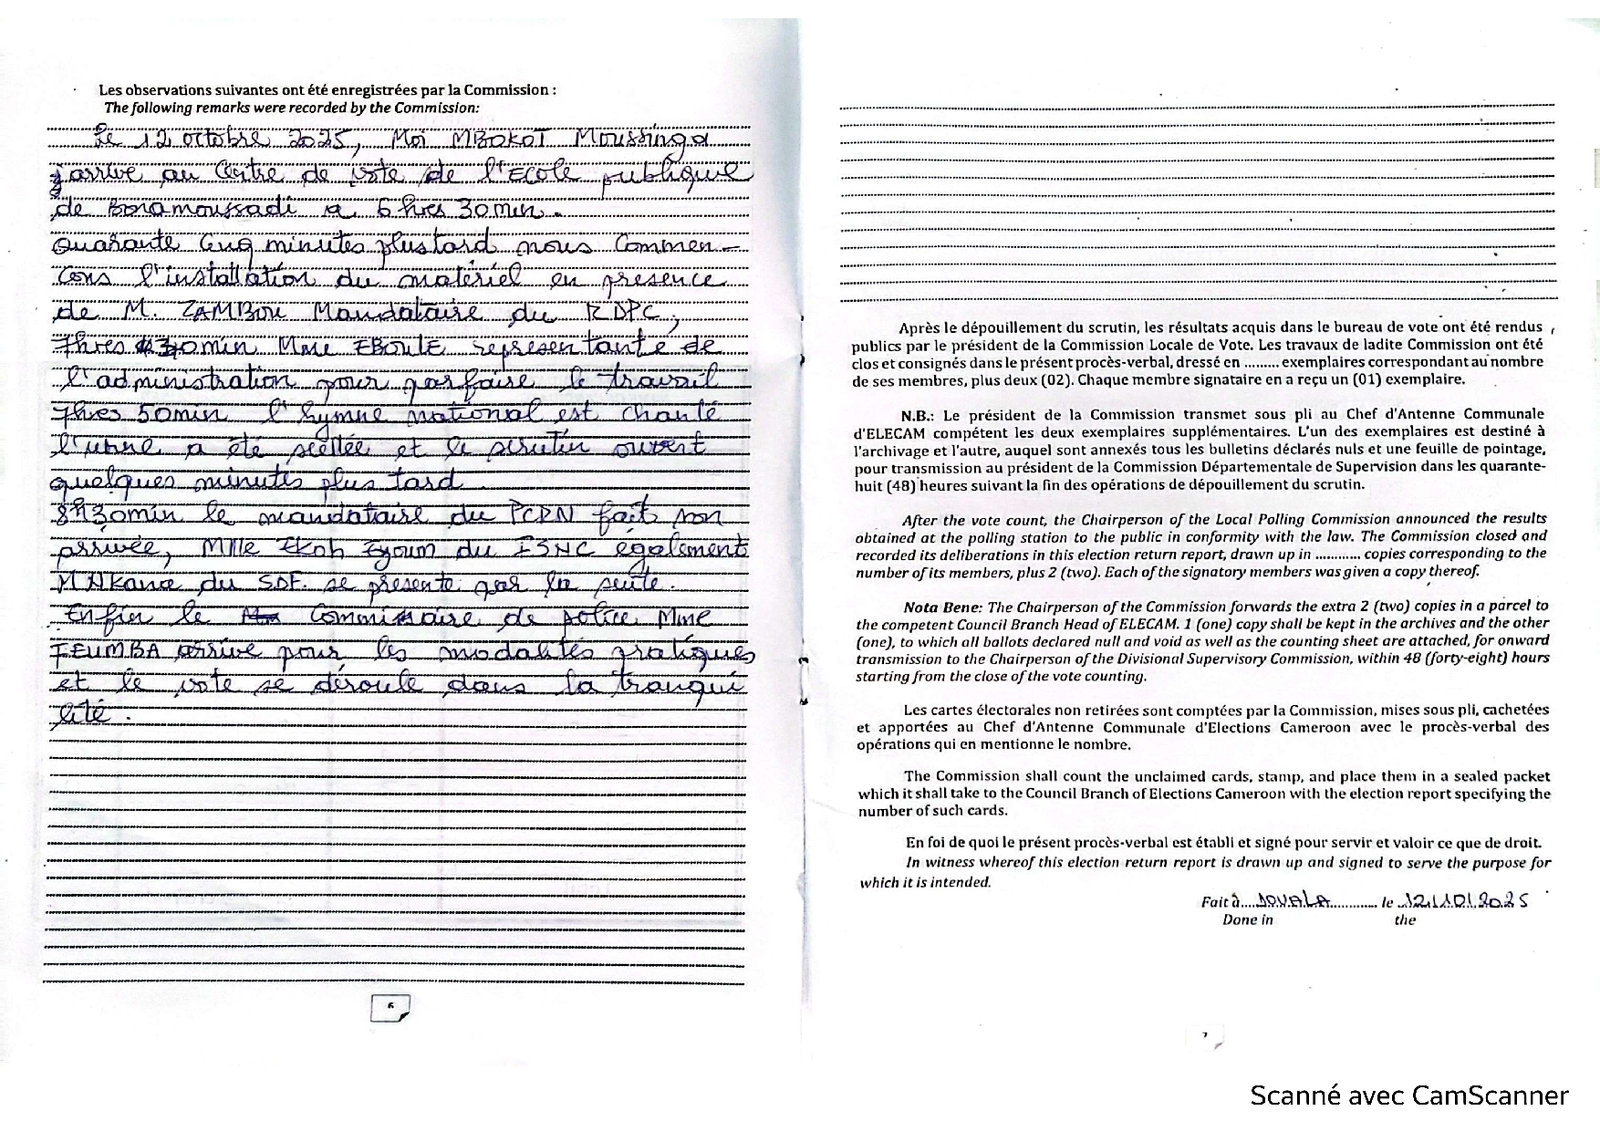 Les observations suivantes ont été enregistrées par la Commission :
The following remarks were recorded by the Commission:
Le 12 octobre 2025, Moi MBOKOT Moussinga
j'arrive au Centre de vote de l'Ecole publique
de Bonamoussadi a 6 hres 30 min.
Quarante Cinq minutes plus tard nous Commen-
cons l'installation du matériel en presence
de M. ZAMBOU Mandataire du RDPC,
7hres 30min Mme EBOULE representante de
l'administration pour parfaire le travail
7hres 50min l'hymne national est chanté
l'urne a été scellée et le scrutin ouvert
quelques minutes plus tard.
8h30min le mandataire du PCRN fait son
arrivée, Mlle Ekoh Eyoum du FSNC egalement
M. Akana du SDF. se presente par la suite.
Enfin le Commissaire de police Mme
FEUMBA arrive pour les modalités pratiques
et le vote se déroule dans la tranqui
lité.
6
Après le dépouillement du scrutin, les résultats acquis dans le bureau de vote ont été rendus
publics par le président de la Commission Locale de Vote. Les travaux de ladite Commission ont été
clos et consignés dans le présent procès-verbal, dressé en ......... exemplaires correspondant au nombre
de ses membres, plus deux (02). Chaque membre signataire en a reçu un (01) exemplaire.
N.B.: Le président de la Commission transmet sous pli au Chef d'Antenne Communale
d'ELECAM compétent les deux exemplaires supplémentaires. L'un des exemplaires est destiné à
l'archivage et l'autre, auquel sont annexés tous les bulletins déclarés nuls et une feuille de pointage,
pour transmission au président de la Commission Départementale de Supervision dans les quarante-
huit (48) heures suivant la fin des opérations de dépouillement du scrutin.
After the vote count, the Chairperson of the Local Polling Commission announced the results
obtained at the polling station to the public in conformity with the law. The Commission closed and
recorded its deliberations in this election return report, drawn up in ........... copies corresponding to the
number of its members, plus 2 (two). Each of the signatory members was given a copy thereof.
Nota Bene: The Chairperson of the Commission forwards the extra 2 (two) copies in a parcel to
the competent Council Branch Head of ELECAM. 1 (one) copy shall be kept in the archives and the other
(one), to which all ballots declared null and void as well as the counting sheet are attached, for onward
transmission to the Chairperson of the Divisional Supervisory Commission, within 48 (forty-eight) hours
starting from the close of the vote counting.
Les cartes électorales non retirées sont comptées par la Commission, mises sous pli, cachetées
et apportées au Chef d'Antenne Communale d'Elections Cameroon avec le procès-verbal des
opérations qui en mentionne le nombre.
The Commission shall count the unclaimed cards, stamp, and place them in a sealed packet
which it shall take to the Council Branch of Elections Cameroon with the election report specifying the
number of such cards.
En foi de quoi le présent procès-verbal est établi et signé pour servir et valoir ce que de droit.
In witness whereof this election return report is drawn up and signed to serve the purpose for
which it is intended.
Fait à....DOUALA............ le ..12/10/2025
Done in the
7
Scanné avec CamScanner